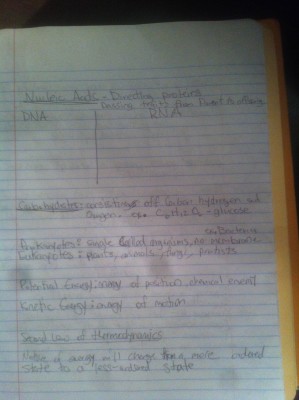 Nucleic Acids - Directing proteins
Passing traits from Parent to offspring
DNA RNA
Carbohydrates: consisting of Carbon hydrogen and
Oxygen - ex. - glucose
ex Bacteria
Prokaryotes: single organisms, no membrane
Eukaryotes: plants, animals, fungi, protists
Potential Energy: energy of position, chemical energy
Kinetic Energy: energy of motion
Second Law of thermodynamics
of energy will change from a more
state to a less state